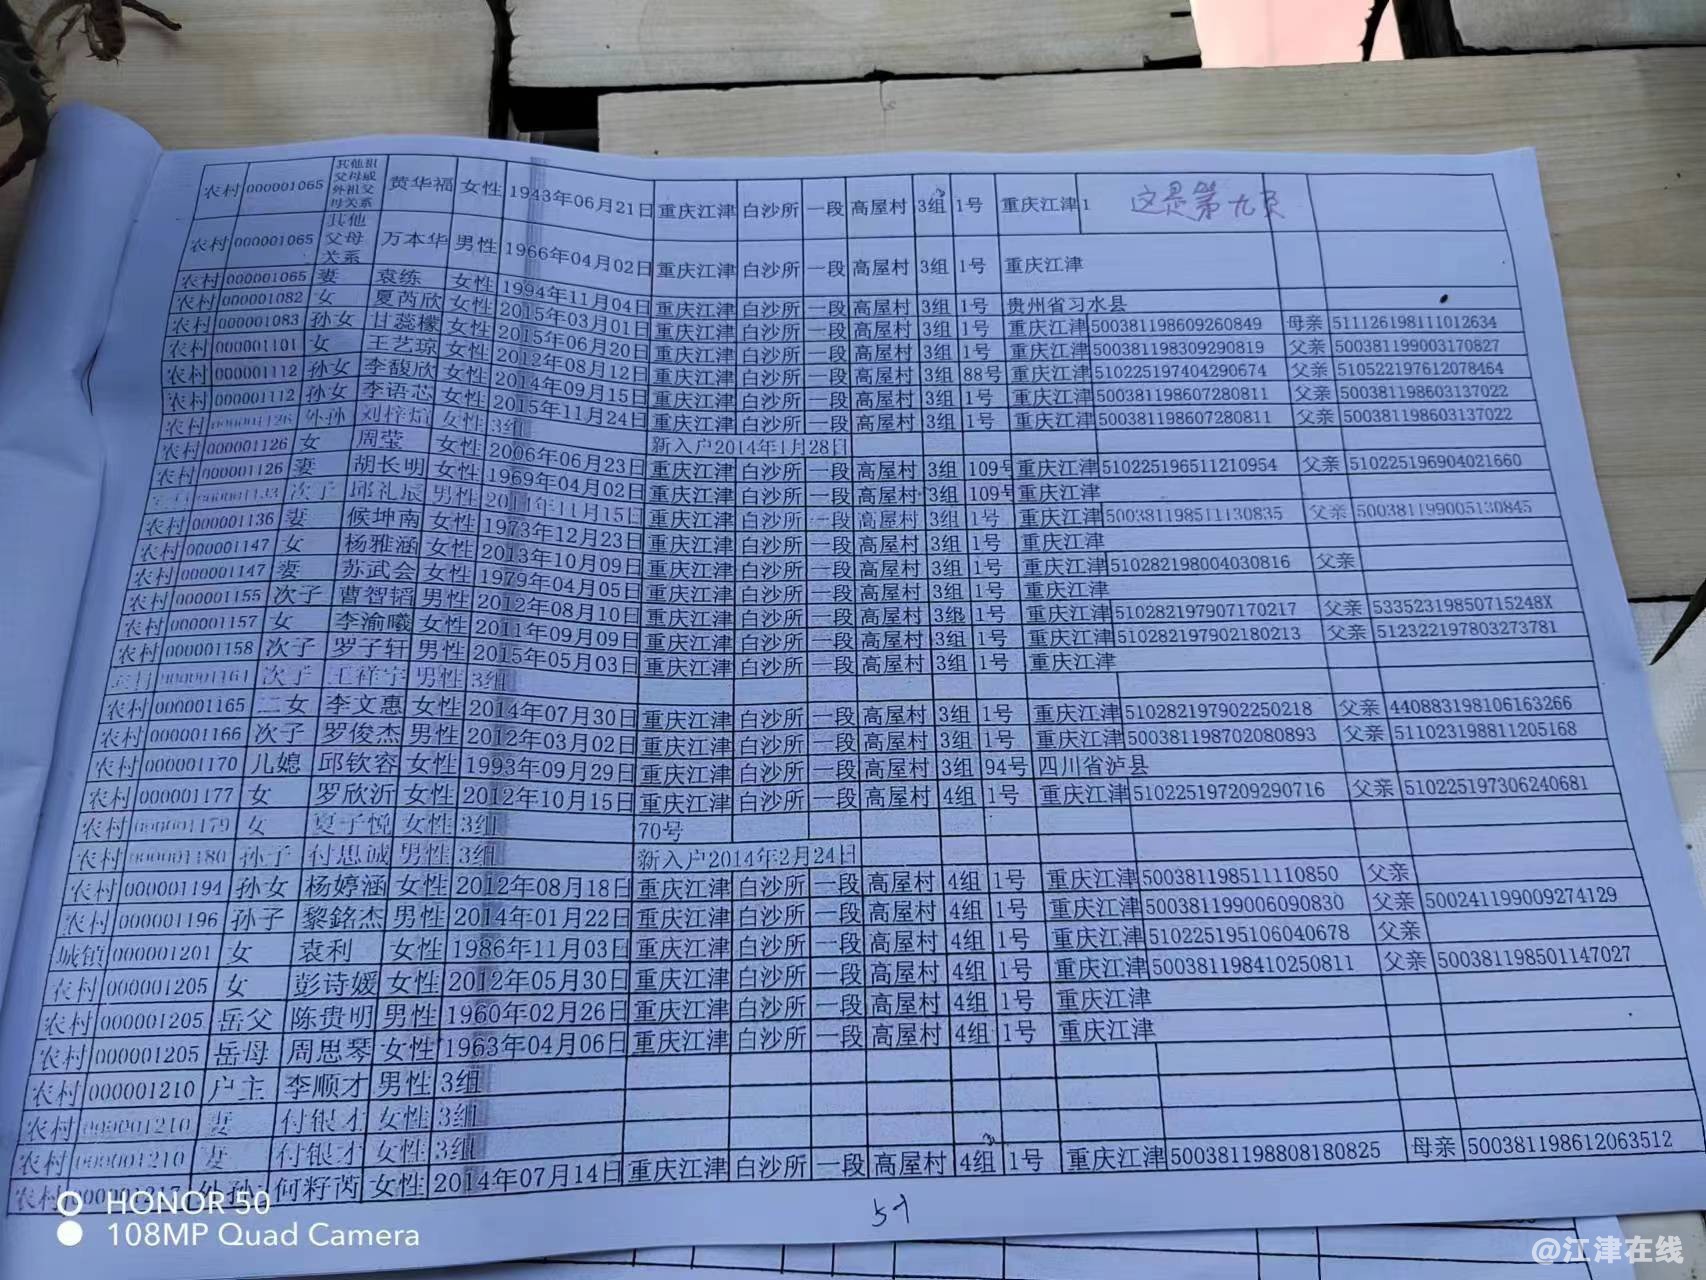 农村 000001065 其他祖父母或外祖父母关系 黄华福 女性 1943年06月21日 重庆江津 白沙所 一段 高屋村 3组 1号 重庆江津 1 这是第九页
农村 000001065 其他父母关系 万本华 男性 1966年04月02日 重庆江津 白沙所 一段 高屋村 3组 1号 重庆江津
农村 000001065 妻 袁练 女性 1994年11月04日 重庆江津 白沙所 一段 高屋村 3组 1号 贵州省习水县
农村 000001082 女 夏芮欣 女性 2015年03月01日 重庆江津 白沙所 一段 高屋村 3组 1号 重庆江津 500381198609260849 母亲 511126198111012634
农村 000001083 孙女 甘蕊檬 女性 2015年06月20日 重庆江津 白沙所 一段 高屋村 3组 1号 重庆江津 500381198309290819 父亲 500381199003170827
农村 000001101 女 王艺琼 女性 2012年08月12日 重庆江津 白沙所 一段 高屋村 3组 88号 重庆江津 510225197404290674 父亲 510522197612078464
农村 000001112 孙女 李馥欣 女性 2014年09月15日 重庆江津 白沙所 一段 高屋村 3组 1号 重庆江津 500381198607280811 父亲 500381198603137022
农村 000001112 孙女 李语芯 女性 2015年11月24日 重庆江津 白沙所 一段 高屋村 3组 1号 重庆江津 500381198607280811 父亲 500381198603137022
农村 000001126 外孙 刘梓煊 女性 3组 新入户2014年1月28日
农村 000001126 女 周莹 女性 2006年06月23日 重庆江津 白沙所 一段 高屋村 3组 109号 重庆江津 510225196511210954 父亲 510225196904021660
农村 000001126 妻 胡长明 女性 1969年04月02日 重庆江津 白沙所 一段 高屋村 3组 109号 重庆江津
000001133 次子 邱礼宸 男性 重庆江津 白沙所 一段 高屋村 3组 1号 重庆江津 500381198511130835 父亲 500381199005130845
农村 000001136 妻 候坤南 女性 1973年12月23日 重庆江津 白沙所 一段 高屋村 3组 1号 重庆江津
农村 000001147 女 杨雅涵 女性 2013年10月09日 重庆江津 白沙所 一段 高屋村 3组 1号 重庆江津 510282198004030816 父亲
农村 000001147 妻 苏武会 女性 1979年04月05日 重庆江津 白沙所 一段 高屋村 3组 1号 重庆江津
农村 000001155 次子 曹智韬 男性 2012年08月10日 重庆江津 白沙所 一段 高屋村 3组 1号 重庆江津 510282197907170217 父亲 53352319850715248X
农村 000001157 女 李渝曦 女性 2011年09月09日 重庆江津 白沙所 一段 高屋村 3组 1号 重庆江津 510282197902180213 父亲 512322197803273781
农村 000001158 次子 罗子轩 男性 2015年05月03日 重庆江津 白沙所 一段 高屋村 3组 1号 重庆江津
农村 000001161 次子 王祥宇 男性 3组
农村 000001165 二女 李文惠 女性 2014年07月30日 重庆江津 白沙所 一段 高屋村 3组 1号 重庆江津 510282197902250218 父亲 440883198106163266
农村 000001166 次子 罗俊杰 男性 2012年03月02日 重庆江津 白沙所 一段 高屋村 3组 1号 重庆江津 500381198702080893 父亲 511023198811205168
农村 000001170 儿媳 邱钦容 女性 1993年09月29日 重庆江津 白沙所 一段 高屋村 3组 94号 四川省泸县
农村 000001177 女 罗欣沂 女性 2012年10月15日 重庆江津 白沙所 一段 高屋村 4组 1号 重庆江津 510225197209290716 父亲 510225197306240681
农村 000001179 女 夏子悦 女性 3组 70号
农村 000001180 孙子 付思诚 男性 3组 新入户2014年2月24日
农村 000001194 孙女 杨婷涵 女性 2012年08月18日 重庆江津 白沙所 一段 高屋村 4组 1号 重庆江津 500381198511110850 父亲
农村 000001196 孙子 黎銘杰 男性 2014年01月22日 重庆江津 白沙所 一段 高屋村 4组 1号 重庆江津 500381199006090830 父亲 500241199009274129
城镇 000001201 女 袁利 女性 1986年11月03日 重庆江津 白沙所 一段 高屋村 4组 1号 重庆江津 510225195106040678 父亲
农村 000001205 女 彭诗媛 女性 2012年05月30日 重庆江津 白沙所 一段 高屋村 4组 1号 重庆江津 500381198410250811 父亲 500381198501147027
农村 000001205 岳父 陈贵明 男性 1960年02月26日 重庆江津 白沙所 一段 高屋村 4组 1号 重庆江津
农村 000001205 岳母 周思琴 女性 1963年04月06日 重庆江津 白沙所 一段 高屋村 4组 1号 重庆江津
农村 000001210 户主 李顺才 男性 3组
农村 000001210 妻 付银才 女性 3组
农村 000001210 妻 付银才 女性 3组
农村 000001217 外孙 何籽芮 女性 2014年07月14日 重庆江津 白沙所 一段 高屋村 4组 1号 重庆江津 500381198808180825 母亲 500381198612063512
HONOR 50
108MP Quad Camera
@江津在线